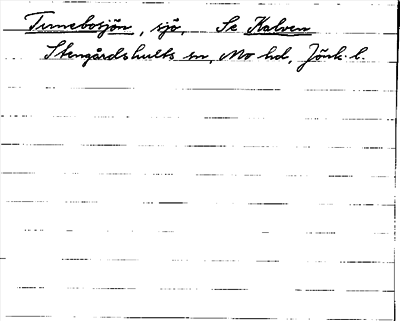 Tunnebosjön, sjö, Se Kalven
Stengårdshults sn, Mo hd, Jönk. l.